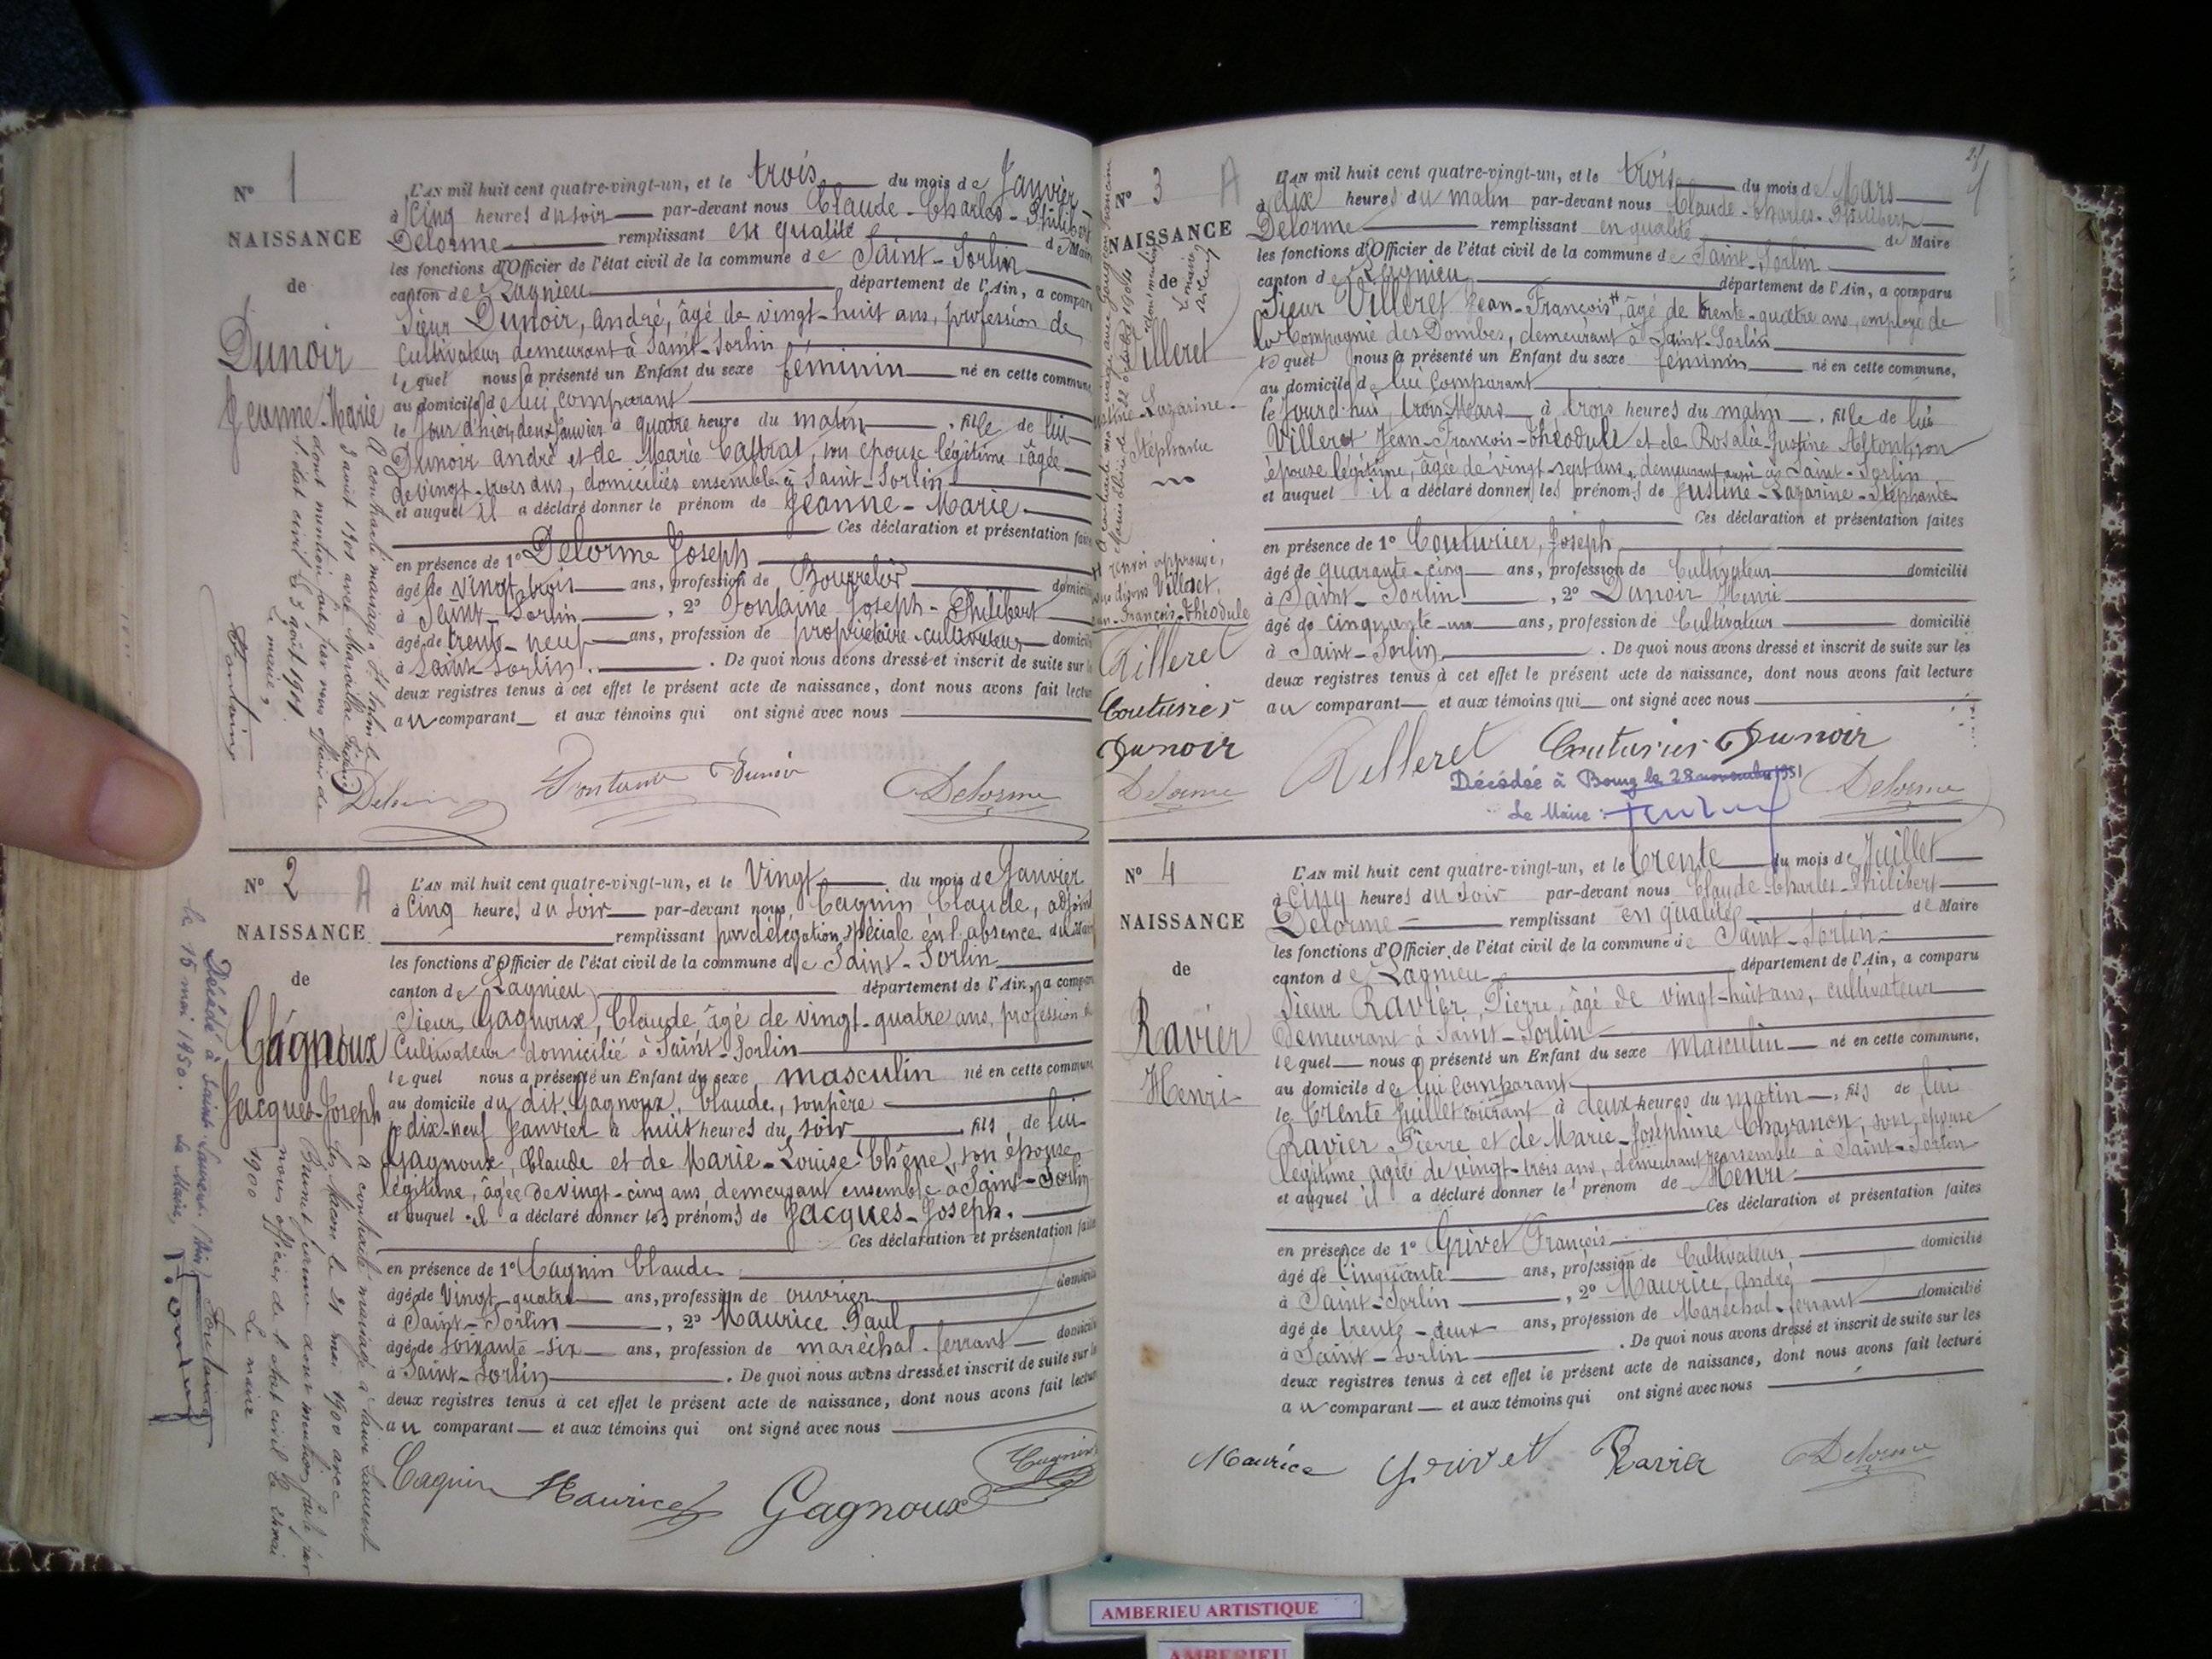 N° 1
NAISSANCE
de
Dunoir
Jeanne-Marie
L'AN mil huit cent quatre-vingt-un, et le trois du mois de Janvier
à Cinq heures du soir par-devant nous Claude-Charles-Philibert
Delorme remplissant en qualité de Maire
les fonctions d'Officier de l'état civil de la commune de Saint-Sorlin
canton de Lagnieu département de l'Ain, a comparu
Sieur Dunoir, André, âgé de vingt-huit ans, profession de
Cultivateur demeurant à Saint-Sorlin
lequel nous a présenté un Enfant du sexe féminin né en cette commune
au domicile de lui comparant
le jour d'hier, deux Janvier à quatre heure du matin, fille de lui
Dunoir André et de Marie Cattrat, son épouse légitime, âgée
de vingt-trois ans, domiciliés ensemble à Saint-Sorlin
et auquel il a déclaré donner le prénom de Jeanne-Marie
Ces déclaration et présentation faites
en présence de 1° Delorme Joseph
âgé de vingt-trois ans, profession de Bourrelier domicilié
à Saint-Sorlin, 2° Fontaine Joseph-Philibert
âgé de trente-neuf ans, profession de propriétaire-cultivateur domicilié
à Saint-Sorlin. De quoi nous avons dressé et inscrit de suite sur les
deux registres tenus à cet effet le présent acte de naissance, dont nous avons fait lecture
au comparant et aux témoins qui ont signé avec nous
A contracté mariage à St Sorlin le
3 août 1901 avec
dont mention faite par nous officier de
l'état civil le 3 août 1901.
Le maire,
Fontaine
Fontaine Dunoir Delorme
N° 2 A
NAISSANCE
de
Gagnoux
Jacques-Joseph
L'AN mil huit cent quatre-vingt-un, et le Vingt du mois de Janvier
à Cinq heures du soir par-devant nous, Cagnin Claude, adjoint
remplissant par délégation spéciale en l'absence du Maire
les fonctions d'Officier de l'état civil de la commune de Saint-Sorlin
canton de Lagnieu département de l'Ain, a comparu
Sieur Gagnoux, Claude âgé de vingt-quatre ans, profession de
Cultivateur domicilié à Saint-Sorlin
lequel nous a présenté un Enfant du sexe masculin né en cette commune
au domicile du dit Gagnoux, Claude, son père
le dix-neuf Janvier à huit heures du soir fils de lui
Gagnoux, Claude et de Marie-Louise Chêne, son épouse
légitime, âgée de vingt-cinq ans demeurant ensemble à Saint-Sorlin
et auquel il a déclaré donner les prénoms de Jacques-Joseph.
Ces déclaration et présentation faites
en présence de 1° Cagnin Claude
âgé de Vingt-quatre ans, profession de ouvrier domicilié
à Saint-Sorlin, 2° Maurice Paul
âgé de soixante-six ans, profession de maréchal-ferrant domicilié
à Saint-Sorlin. De quoi nous avons dressé et inscrit de suite sur les
deux registres tenus à cet effet le présent acte de naissance, dont nous avons fait lecture
au comparant et aux témoins qui ont signé avec nous
A contracté mariage à Saint Laurent
les Mâcon le 21 mai 1900 avec
Brunet dont mention faite par
nous officier de l'état civil le
1900
Le maire
Décédé à Saint Laurent
le 15 mai 1950. Le Maire,
Cagnin Maurice Gagnoux Cagnin
N° 3 A
NAISSANCE
de
Villeret
Justine-Lazarine-
Stéphanie
renvoi approuvé,
nous disons Villeret
Jean-François-Théodule
Villeret
Couturier
Dunoir
Delorme
L'AN mil huit cent quatre-vingt-un, et le trois du mois de Mars
à dix heures du matin par-devant nous Claude-Charles-Philibert
Delorme remplissant en qualité de Maire
les fonctions d'Officier de l'état civil de la commune de Saint-Sorlin
canton de Lagnieu département de l'Ain, a comparu
Sieur Villeret Jean-François, âgé de trente-quatre ans, employé de
la Compagnie des Dombes, demeurant à Saint-Sorlin
lequel nous a présenté un Enfant du sexe féminin né en cette commune,
au domicile de lui comparant
le jourd'hui, trois Mars à trois heures du matin, fille de lui
Villeret Jean-François-Théodule et de Rosalie-Justine Altont, son
épouse légitime, âgée de vingt-sept ans, demeurant aussi à Saint-Sorlin
et auquel il a déclaré donner les prénoms de Justine-Lazarine-Stéphanie
Ces déclaration et présentation faites
en présence de 1° Couturier, Joseph
âgé de quarante-cinq ans, profession de Cultivateur domicilié
à Saint-Sorlin, 2° Dunoir Henri
âgé de cinquante-un ans, profession de Cultivateur domicilié
à Saint-Sorlin. De quoi nous avons dressé et inscrit de suite sur les
deux registres tenus à cet effet le présent acte de naissance, dont nous avons fait lecture
au comparant et aux témoins qui ont signé avec nous
Villeret Couturier Dunoir
Décédée à Bourg le 28 novembre 1951
Le Maire :
Delorme
N° 4
NAISSANCE
de
Ravier
Henri
L'AN mil huit cent quatre-vingt-un, et le trente du mois de Juillet
à Cinq heures du Soir par-devant nous Claude-Charles-Philibert
Delorme remplissant en qualité de Maire
les fonctions d'Officier de l'état civil de la commune de Saint-Sorlin
canton de Lagnieu département de l'Ain, a comparu
Sieur Ravier, Pierre, âgé de vingt-huit ans, cultivateur
Demeurant à Saint-Sorlin
lequel nous a présenté un Enfant du sexe masculin né en cette commune,
au domicile de lui comparant
le trente Juillet courant à deux heures du matin, fils de lui
Ravier Pierre et de Marie-Joséphine Chavanon, son épouse
légitime âgée de vingt-trois ans, demeurant ensemble à Saint-Sorlin
et auquel il a déclaré donner le prénom de Henri
Ces déclaration et présentation faites
en présence de 1° Grivet François
âgé de Cinquante ans, profession de Cultivateur domicilié
à Saint-Sorlin, 2° Maurice, André
âgé de trente-deux ans, profession de Maréchal-ferrant domicilié
à Saint-Sorlin. De quoi nous avons dressé et inscrit de suite sur les
deux registres tenus à cet effet le présent acte de naissance, dont nous avons fait lecture
au comparant et aux témoins qui ont signé avec nous
Maurice Grivet Ravier Delorme
AMBERIEU ARTISTIQUE
AMBERIEU